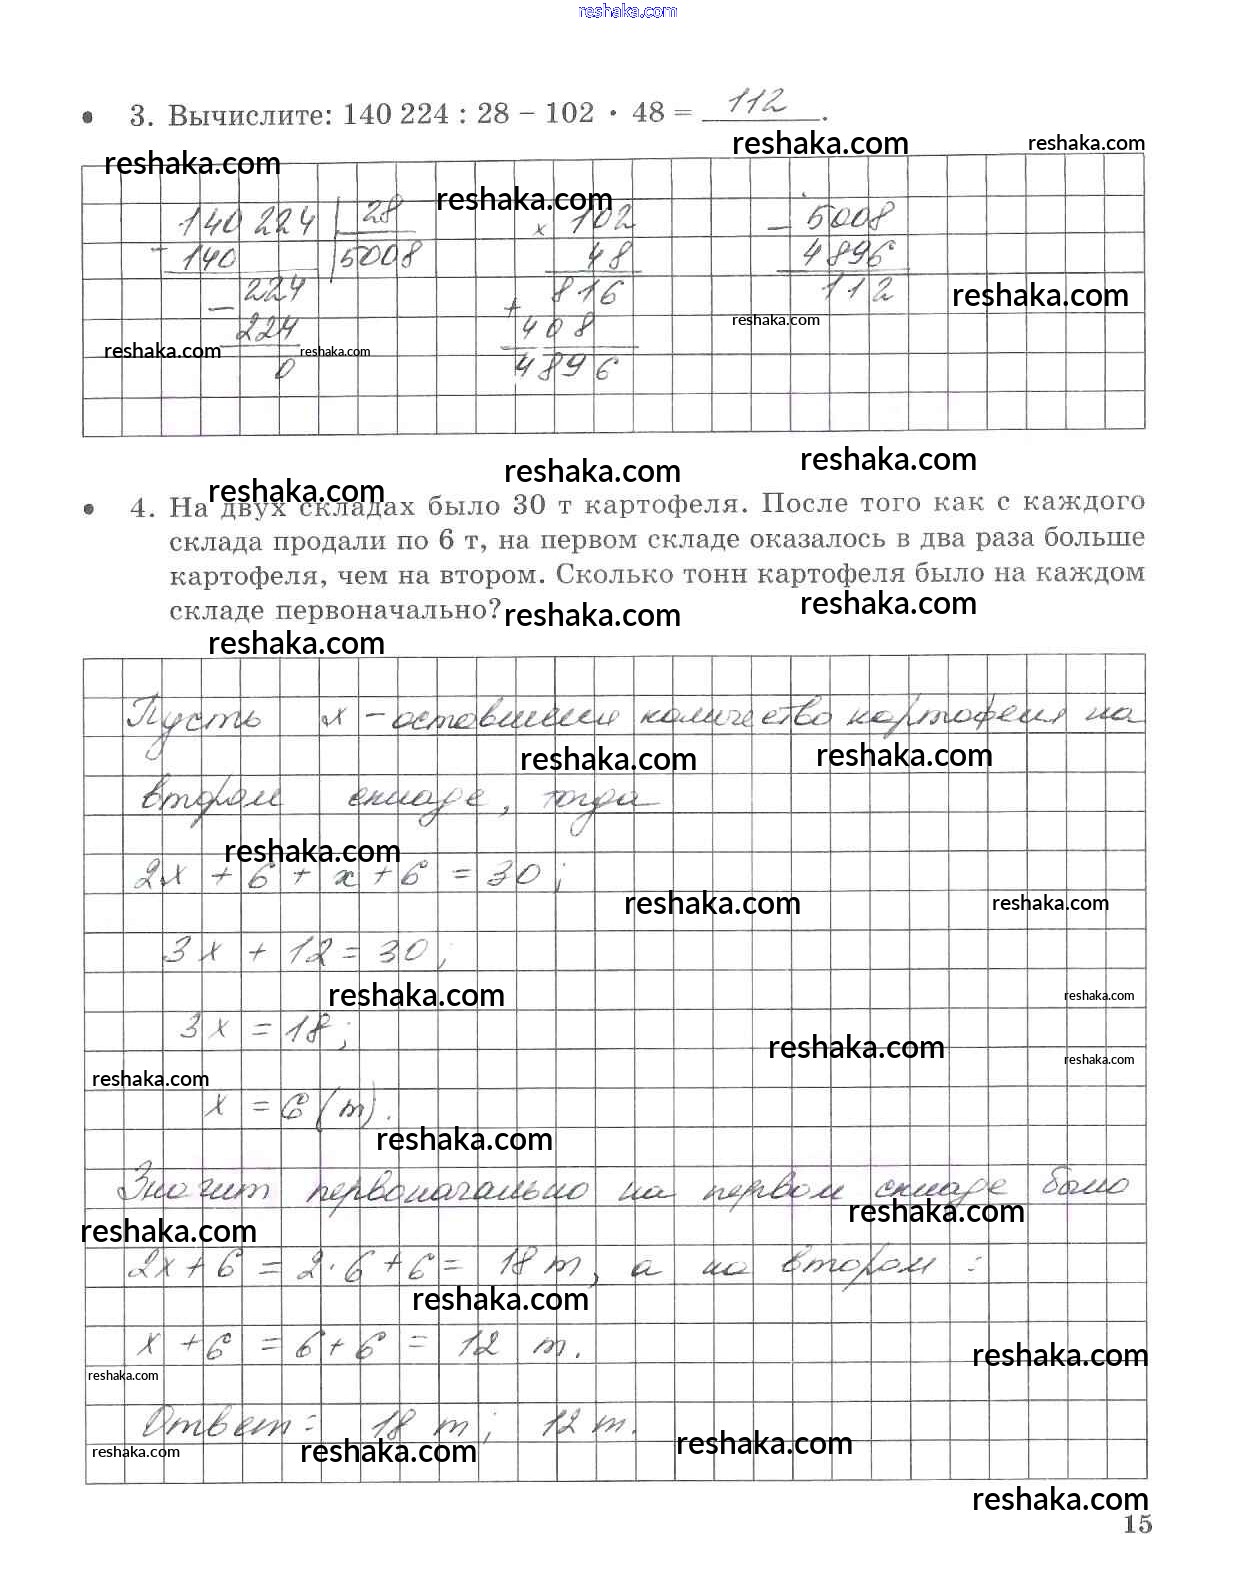 reshaka.com
3. Вычислите: 140 224 : 28 – 102 · 48 = 112.
reshaka.com reshaka.com
reshaka.com reshaka.com
140 224 28 × 102 – 5008
– 140 5008 48 4896
– 224 816 112 reshaka.com
224 + 408 reshaka.com
reshaka.com 0 reshaka.com 4896
reshaka.com reshaka.com
reshaka.com
4. На двух складах было 30 т картофеля. После того как с каждого
склада продали по 6 т, на первом складе оказалось в два раза больше
картофеля, чем на втором. Сколько тонн картофеля было на каждом
складе первоначально?
reshaka.com reshaka.com
reshaka.com
Пусть x – оставшееся количество картофеля на
reshaka.com reshaka.com
втором складе, тогда
reshaka.com
2x + 6 + x + 6 = 30;
reshaka.com reshaka.com
3x + 12 = 30;
reshaka.com reshaka.com
3x = 18;
reshaka.com reshaka.com
reshaka.com
x = 6 (т).
reshaka.com
Значит первоначально на первом складе было
reshaka.com reshaka.com
2x + 6 = 2 · 6 + 6 = 18 т, а на втором :
reshaka.com
x + 6 = 6 + 6 = 12 т.
reshaka.com
reshaka.com
Ответ: 18 т; 12 т.
reshaka.com reshaka.com reshaka.com
reshaka.com
15